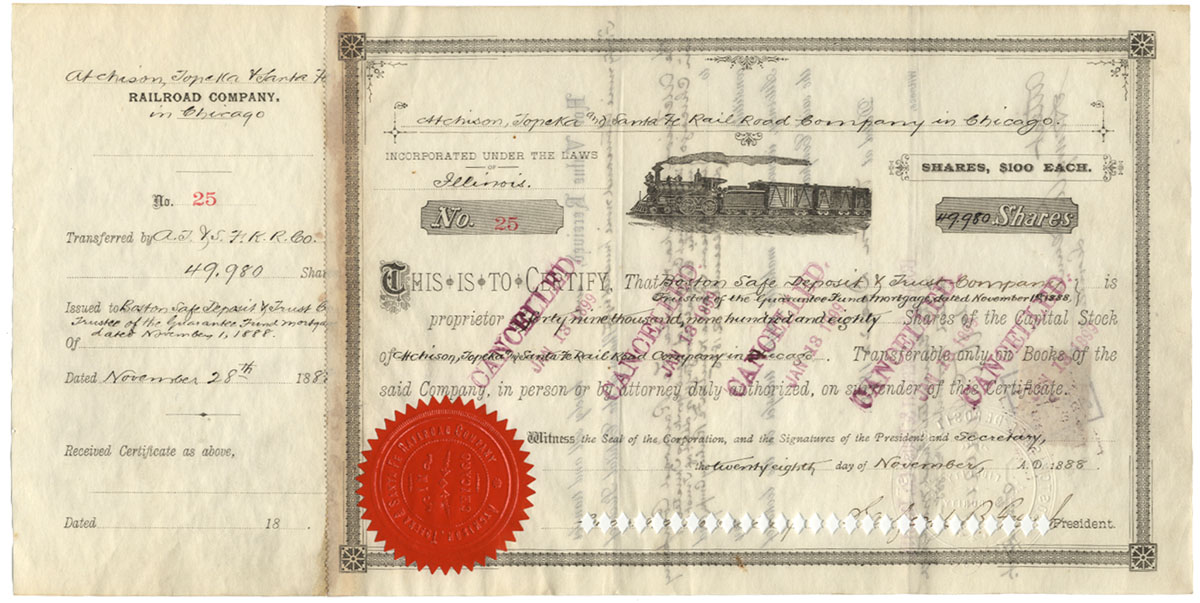 Atchison, Topeka & Santa Fe
RAILROAD COMPANY.
in Chicago
No. 25
Transferred by A. T. & S. F. R. R. Co.
49,980 Shar
Issued to Boston Safe Deposit & Trust C
Trustee of the Guarantee Fund mortga
dated November 1, 1888.
Of
Dated November 28th 188
Received Certificate as above,
Dated 18 .
Atchison, Topeka and Santa Fe Rail Road Company in Chicago.
INCORPORATED UNDER THE LAWS
OF
Illinois.
SHARES, $100 EACH.
No. 25
49,980 Shares
THIS IS TO CERTIFY, That Boston Safe Deposit & Trust Company is
Trustee of the Guarantee Fund mortgage, dated November 1st, 1888,
proprietor forty nine thousand, nine hundred and eighty Shares of the Capital Stock
of Atchison, Topeka and Santa Fe Rail Road Company in Chicago. Transferable only on Books of the
said Company, in person or by attorney duly authorized, on surrender of this Certificate.
CANCELLED JAN 18 1899
CANCELLED JAN 18 1899
CANCELLED JAN 18
CANCELLED
CANCELLED
Witness the Seal of the Corporation, and the Signatures of the President and Secretary,
the twenty eighth day of November, A.D. 1888
President.
CHICAGO